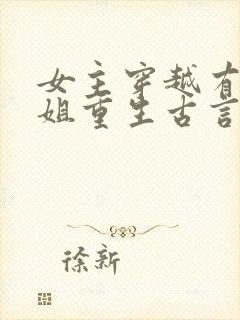 女主穿越有
姐重生古言
徐新